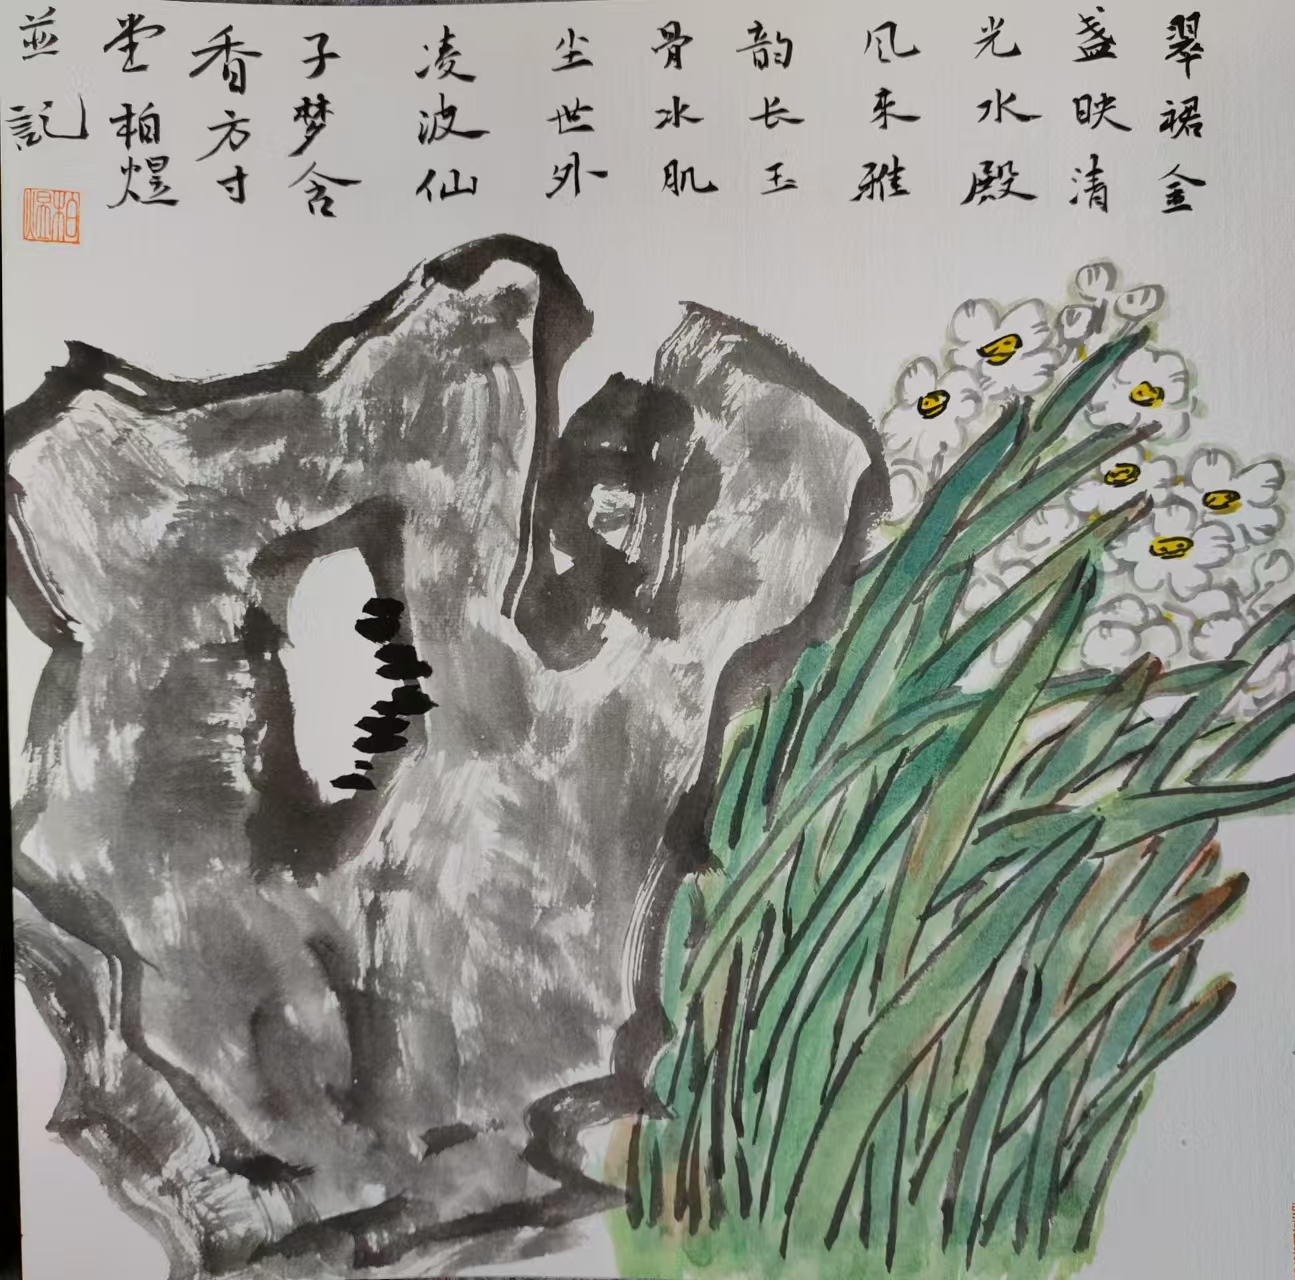 翠裙金
盏映清
光水殿
风来雅
韵长玉
骨冰肌
尘世外
凌波仙
子梦含
香方寸
堂柏煜
並記
柏煜